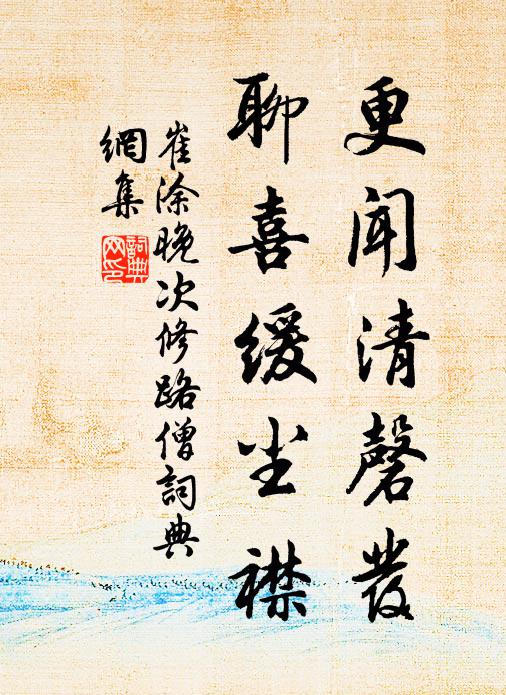 更闻清磬发
聊喜缓尘襟
崔涂晚次修路僧詞典
網集
詞典
网印